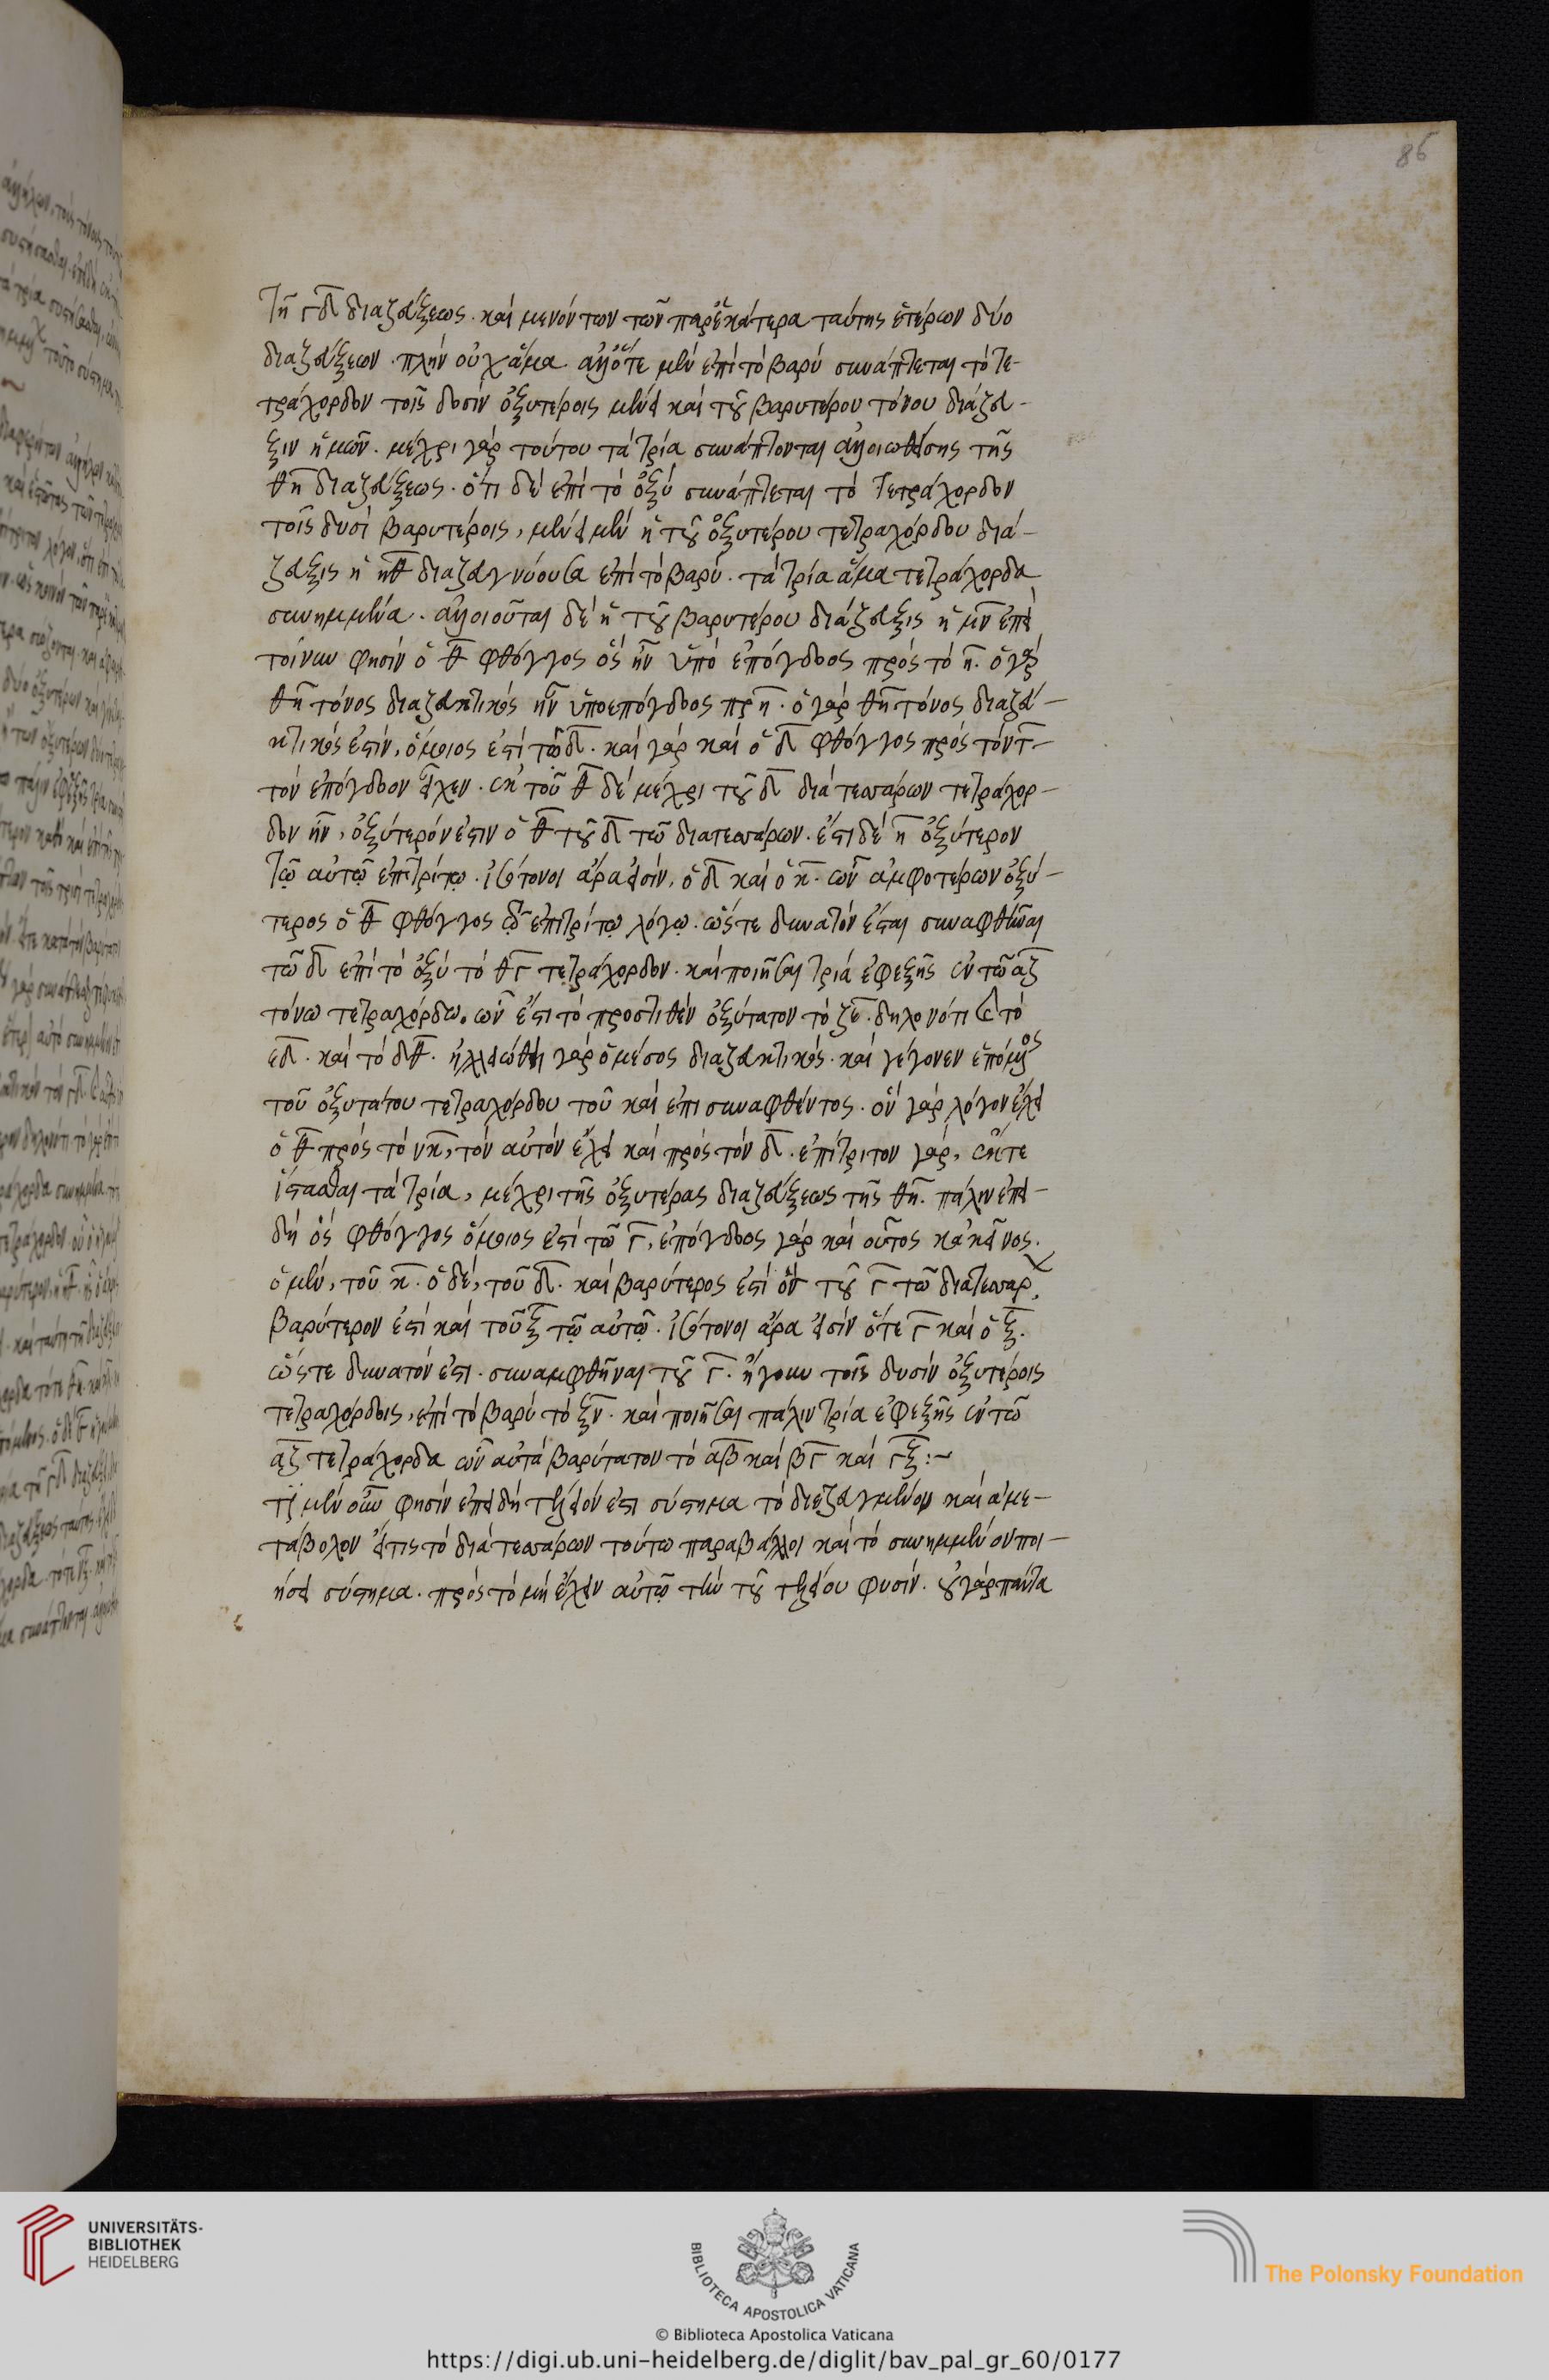 86
τῆ γδ διαζεύξεως. καὶ μενόντων τῶν παρ' ἑκάτερα ταύτης ἑτέρων δύο
διαζεύξεων. πλὴν οὐχ ἅμα. ἀλλ' ὅτε μὲν ἐπὶ τὸ βαρὺ συνάπτεται τὸ τε-
τράχορδον τοῖς δυσὶν ὀξυτέροις μένει καὶ τοῦ βαρυτέρου τόνου διάζευ-
ξιν ἡμῶν. μέχρι γὰρ τούτου τὰ τρία συνάπτονται ἀλλοιωθείσης τῆς
θη διαζεύξεως. ὅτι δὲ ἐπὶ τὸ ὀξὺ συνάπτεται τὸ τετράχορδον
τοῖς δυσὶ βαρυτέροις, μένει μὲν ἡ τοῦ ὀξυτέρου τετραχόρδου διά-
ζευξις ἡ ηθ διαζευγνύουσα ἐπὶ τὸ βαρὺ. τὰ τρία ἅμα τετράχορδα
συνημμένα. ἀλλοιοῦται δὲ ἡ τοῦ βαρυτέρου διάζευξις ἡ μν ἐπεὶ
τοίνυν φησὶν ὁ θ φθόγγος ὃς ἦν ὑπὸ ἐπόγδοος πρὸς τὸ η. ὁ γὰρ
θη τόνος διαζευκτικὸς ἦν ὑποεπόγδοος πρ η. ὁ γὰρ θη τόνος διαζευ-
κτικός ἐστιν, ὅμοιος ἐστὶ τῶ δ. καὶ γὰρ καὶ ὁ δ φθόγγος πρὸς τὸν γ-
τὸν ἐπόγδοον εἶχεν. ἐκ τοῦ θ δὲ μέχρι τοῦ δ διὰ τεσσάρων τετράχορ-
δον ἦν, ὀξύτερόν ἐστιν ὁ θ τοῦ δ τῶ διατεσσάρων. ἔστι δὲ η ὀξύτερον
τῷ αὐτῷ ἐπιτρίτῳ. ἰσότονοι ἄρα εἰσὶν, ὁ δ καὶ ὁ κ. ὧν ἀμφοτέρων ὀξύ-
τερος ὁ θ φθόγγος ἐν ἐπιτρίτῳ λόγῳ. ὥστε δυνατὸν ἔσται συναφθῆναι
τῶ δ ἐπὶ τὸ ὀξὺ τὸ θγ τετράχορδον. καὶ ποιῆσαι τρία ἐφεξῆς ἐν τῶ αζ
τόνω τετραχόρδω. ὧν ἔστι τὸ προστιθὲν ὀξύτατον τὸ ζε. δηλονότι καὶ τὸ
εδ. καὶ τὸ δθ. ἠλλοιώθη γὰρ ὁ μέσος διαζευκτικός. καὶ γέγονεν ἑπόμενος
τοῦ ὀξυτάτου τετραχόρδου τοῦ καὶ ἐπισυναφθέντος. ὃν γὰρ λόγον ἔχει
ὁ θ πρὸς τὸ νκ, τὸν αὐτὸν ἔχει καὶ πρὸς τὸν δ. ἐπίτριτον γάρ, ὥστε
ἵστασθαι τὰ τρία, μέχρι τῆς ὀξυτέρας διαζεύξεως τῆς θη. πάλιν ἐπει-
δὴ ὃς φθόγγος ὅμοιος ἐστὶ τῶ γ, ἐπόγδοος γὰρ καὶ οὗτος κἀκεῖνος.
ὁ μὲν, τοῦ κ. ὁ δὲ, τοῦ δ. καὶ βαρύτερος ἐστὶ τοῦ γ τῶ διατεσσάρ
βαρύτερον ἐστὶ καὶ τοῦ ξ τῷ αὐτῷ. ἰσότονοι ἄρα εἰσὶν ὅτε γ καὶ ὁ ξ.
ὥστε δυνατόν ἐστι. συναμφθῆναι τοῦ γ. ἤγουν τοῖς δυσὶν ὀξυτέροις
τετραχόρδοις, ἐπὶ τὸ βαρὺ τὸ ξν. καὶ ποιῆσαι πάλιν τρία ἐφεξῆς ἐν τῶ
αζ τετράχορδα ὧν αὐτὰ βαρύτατον τὸ αβ καὶ βγ καὶ γξ:~
τί μὲν οὖν φησὶν ἐπειδὴ τέλειόν ἐστι σύστημα τὸ διεζευγμένον καὶ ἀμε-
τάβολον εἴτις τὸ διὰ τεσσάρων τούτω παραβάλλοι καὶ τὸ συνημμένον ποι-
ήσει σύστημα. πρὸς τὸ μὴ ἔχειν αὐτῷ τὴν τοῦ τελείου φυσίν. οὐ γὰρ πάντα
UNIVERSITÄTS-
BIBLIOTHEK
HEIDELBERG
BIBLIOTECA APOSTOLICA VATICANA
The Polonsky Foundation
© Biblioteca Apostolica Vaticana
https://digi.ub.uni-heidelberg.de/diglit/bav_pal_gr_60/0177